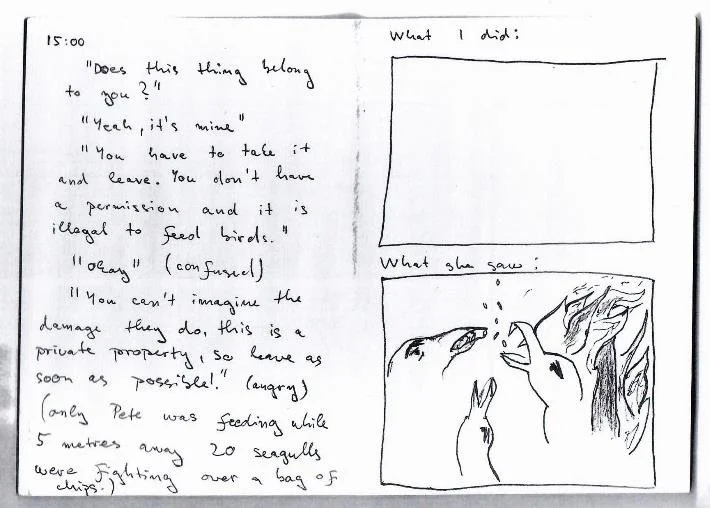 15:00
"Does this thing belong
to you?"
"Yeah, it's mine"
"You have to take it
and leave. You don't have
a permission and it is
illegal to feed birds."
"okay" (confused)
"You can't imagine the
damage they do, this is a
private property, so leave as
soon as possible!." (angry)
(only Pete was feeding while
5 metres away 20 seagulls
were fighting over a bag of
chips.)
What I did:
What she saw: